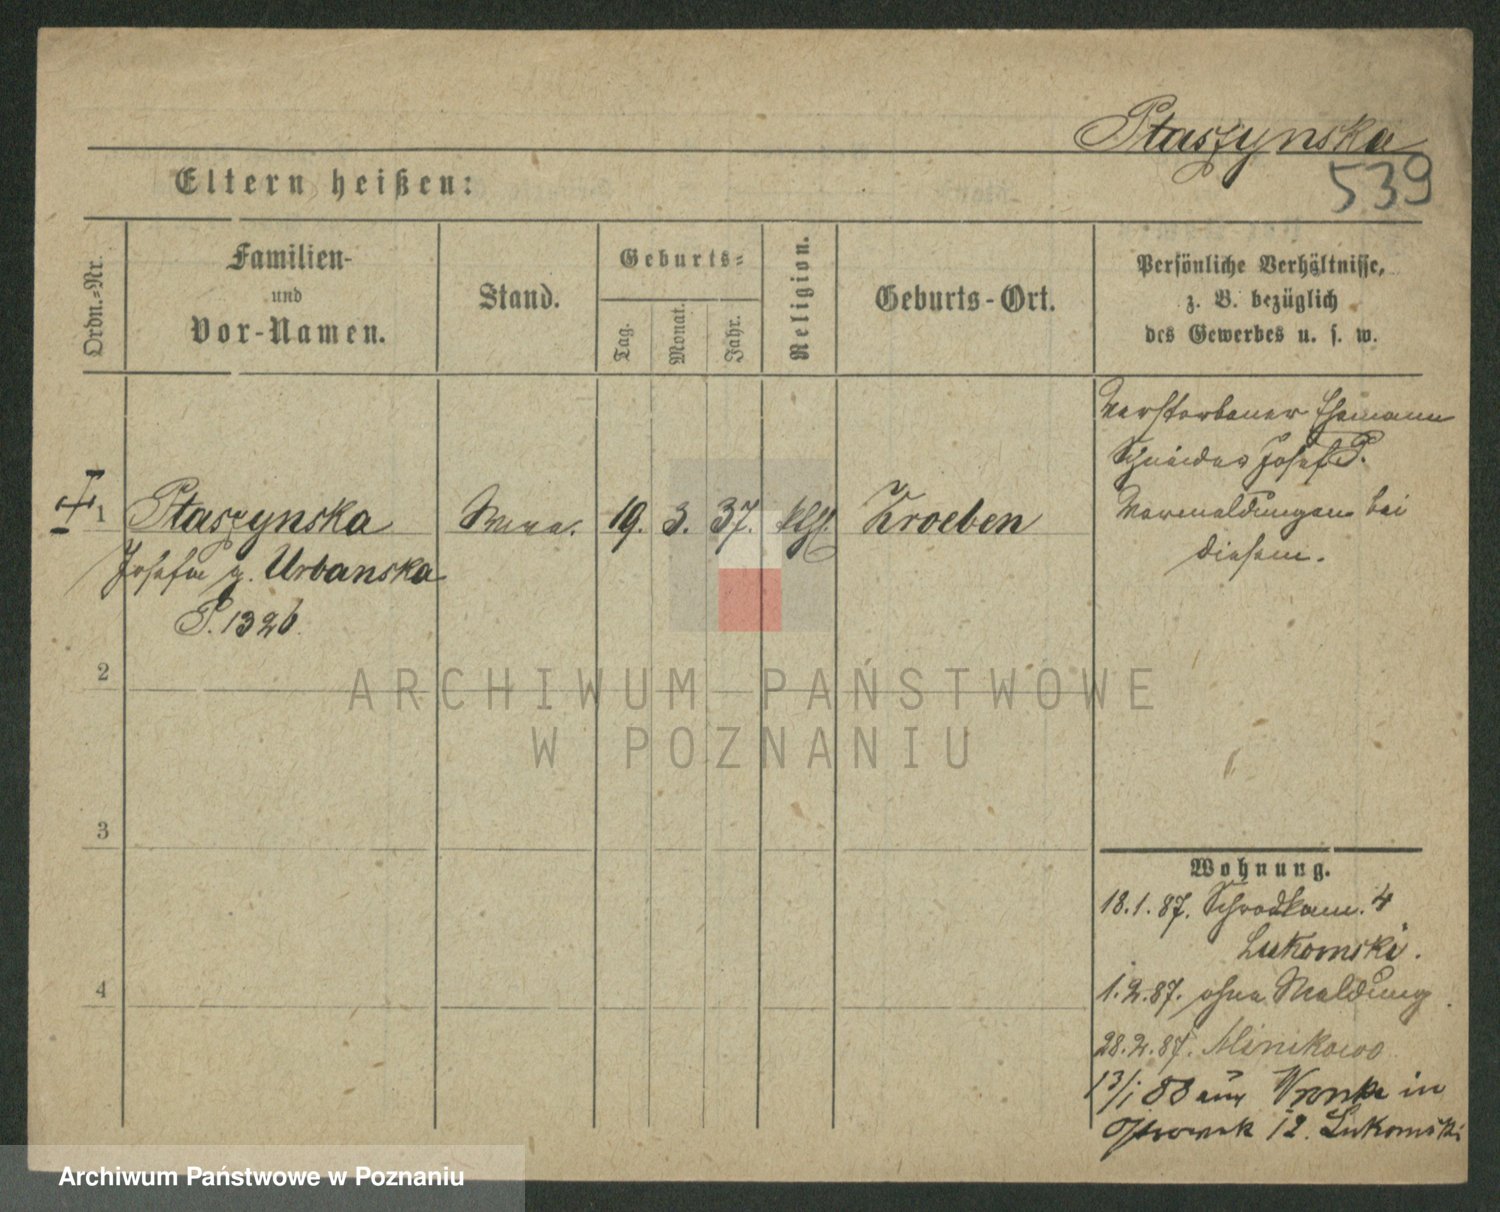 Ptaszynska
539
Eltern heißen:
Ordn.-Nr.
Familien-
und
Vor-Namen.
Stand.
Geburts-
Tag.
Monat.
Jahr.
Religion.
Geburts-Ort.
Persönliche Verhältnisse,
z. B. bezüglich
des Gewerbes u. s. w.
Verstorbener Ehemann
Schneider Josef P.
Vormeldungen bei
diesem.
1 Ptaszynska 19. 3. 37. kth. Kroeben
Josefa g. Urbanska
P. 1326.
2
3
4
Wohnung.
18.1.87. Schrodkam. 4
Lukomski.
1.2.87. ohne Meldung
28.2.87. Minikowo
13/1 88 aus Wronke in
Ostrowek 12. Lukomski
ARCHIWUM PAŃSTWOWE
W POZNANIU
Archiwum Państwowe w Poznaniu